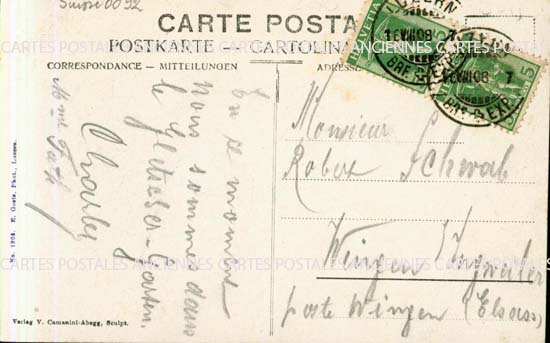 Suisse 0092
CARTE POSTA
POSTKARTE — CARTOLINA
CORRESPONDANCE - MITTEILUNGEN
ADRESSE
HELVETIA
5
5
LUZERN
1.VIII.08 7
BRF. EXP.
1.VIII.08 7
BRF. EXP.
En ce moment
nous sommes dans
le Gletscher-Garten.
Charles
Mme
Monsieur
Robert Schwab
Wingen Ingwiler
poste Wingen (Elsass)
No. 1903. E. Goetz, Phot., Luzern.
Verlag V. Camanini-Abegg, Sculpt.
CARTES POSTALES ANCIENNES CARTES POSTALES ANCIENNES CARTES POSTALES